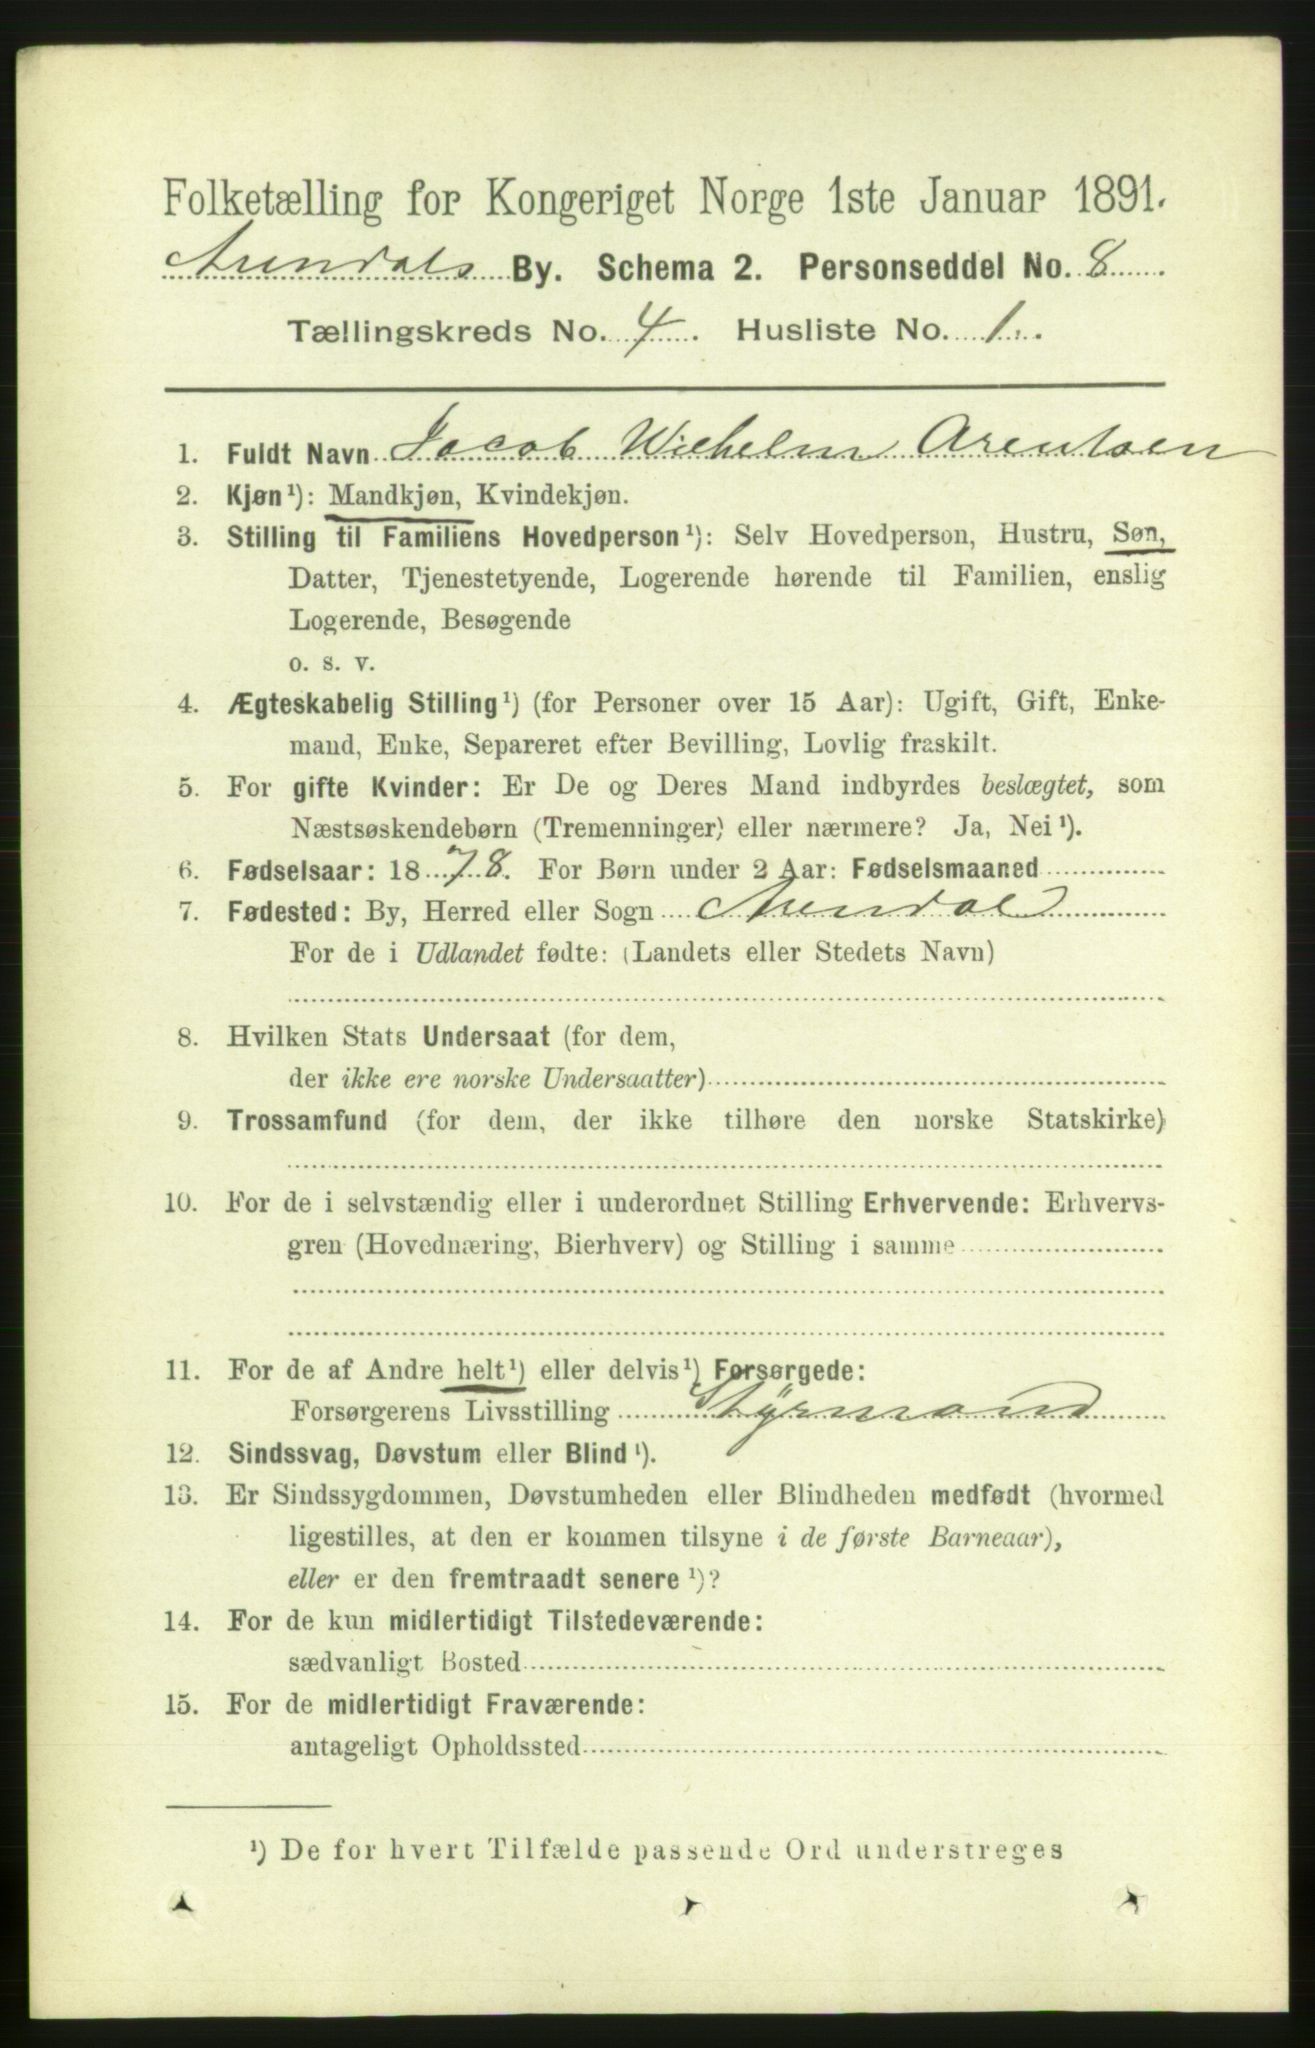 Folketælling for Kongeriget Norge 1ste Januar 1891.
Arendals By. Schema 2. Personseddel No. 8
Tællingskreds No. 4. Husliste No. 1.
1. Fuldt Navn Jacob Wilhelm Arentsen
2. Kjøn¹): Mandkjøn, Kvindekjøn.
3. Stilling til Familiens Hovedperson¹): Selv Hovedperson, Hustru, Søn,
Datter, Tjenestetyende, Logerende hørende til Familien, enslig
Logerende, Besøgende
o. s. v.
4. Ægteskabelig Stilling¹) (for Personer over 15 Aar): Ugift, Gift, Enke-
mand, Enke, Separeret efter Bevilling, Lovlig fraskilt.
5. For gifte Kvinder: Er De og Deres Mand indbyrdes beslægtet, som
Næstsøskendebørn (Tremenninger) eller nærmere? Ja, Nei¹).
6. Fødselsaar: 1878. For Børn under 2 Aar: Fødselsmaaned
7. Fødested: By, Herred eller Sogn Arendal
For de i Udlandet fødte: (Landets eller Stedets Navn)
8. Hvilken Stats Undersaat (for dem,
der ikke ere norske Undersaatter)
9. Trossamfund (for dem, der ikke tilhøre den norske Statskirke)
10. For de i selvstændig eller i underordnet Stilling Erhvervende: Erhvervs-
gren (Hovednæring, Bierhverv) og Stilling i samme
11. For de af Andre helt¹) eller delvis¹) Forsørgede:
Forsørgerens Livsstilling Styrmand
12. Sindssvag, Døvstum eller Blind¹).
13. Er Sindssygdommen, Døvstumheden eller Blindheden medfødt (hvormed
ligestilles, at den er kommen tilsyne i de første Barneaar),
eller er den fremtraadt senere¹)?
14. For de kun midlertidigt Tilstedeværende:
sædvanligt Bosted
15. For de midlertidigt Fraværende:
antageligt Opholdssted
¹) De for hvert Tilfælde passende Ord understreges